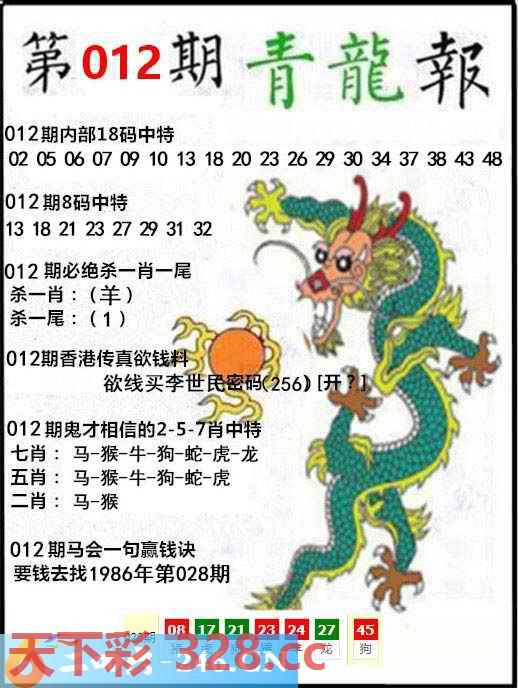 第012期青龍報
012期内部18码中特
02 05 06 07 09 10 13 18 20 23 26 29 30 34 37 38 43 48
012期8码中特
13 18 21 23 27 29 31 32
012期必绝杀一肖一尾
杀一肖：（羊）
杀一尾：（1）
012期香港传真欲钱料
欲线买李世民密码(256)[开？]
012期鬼才相信的2-5-7肖中特
七肖：马-猴-牛-狗-蛇-虎-龙
五肖：马-猴-牛-狗-蛇-虎
二肖：马-猴
012期马会一句赢钱诀
要钱去找1986年第028期
08 17 21 23 24 27 45
猪 虎 猴 羊 龙 狗
天下彩-328.cc